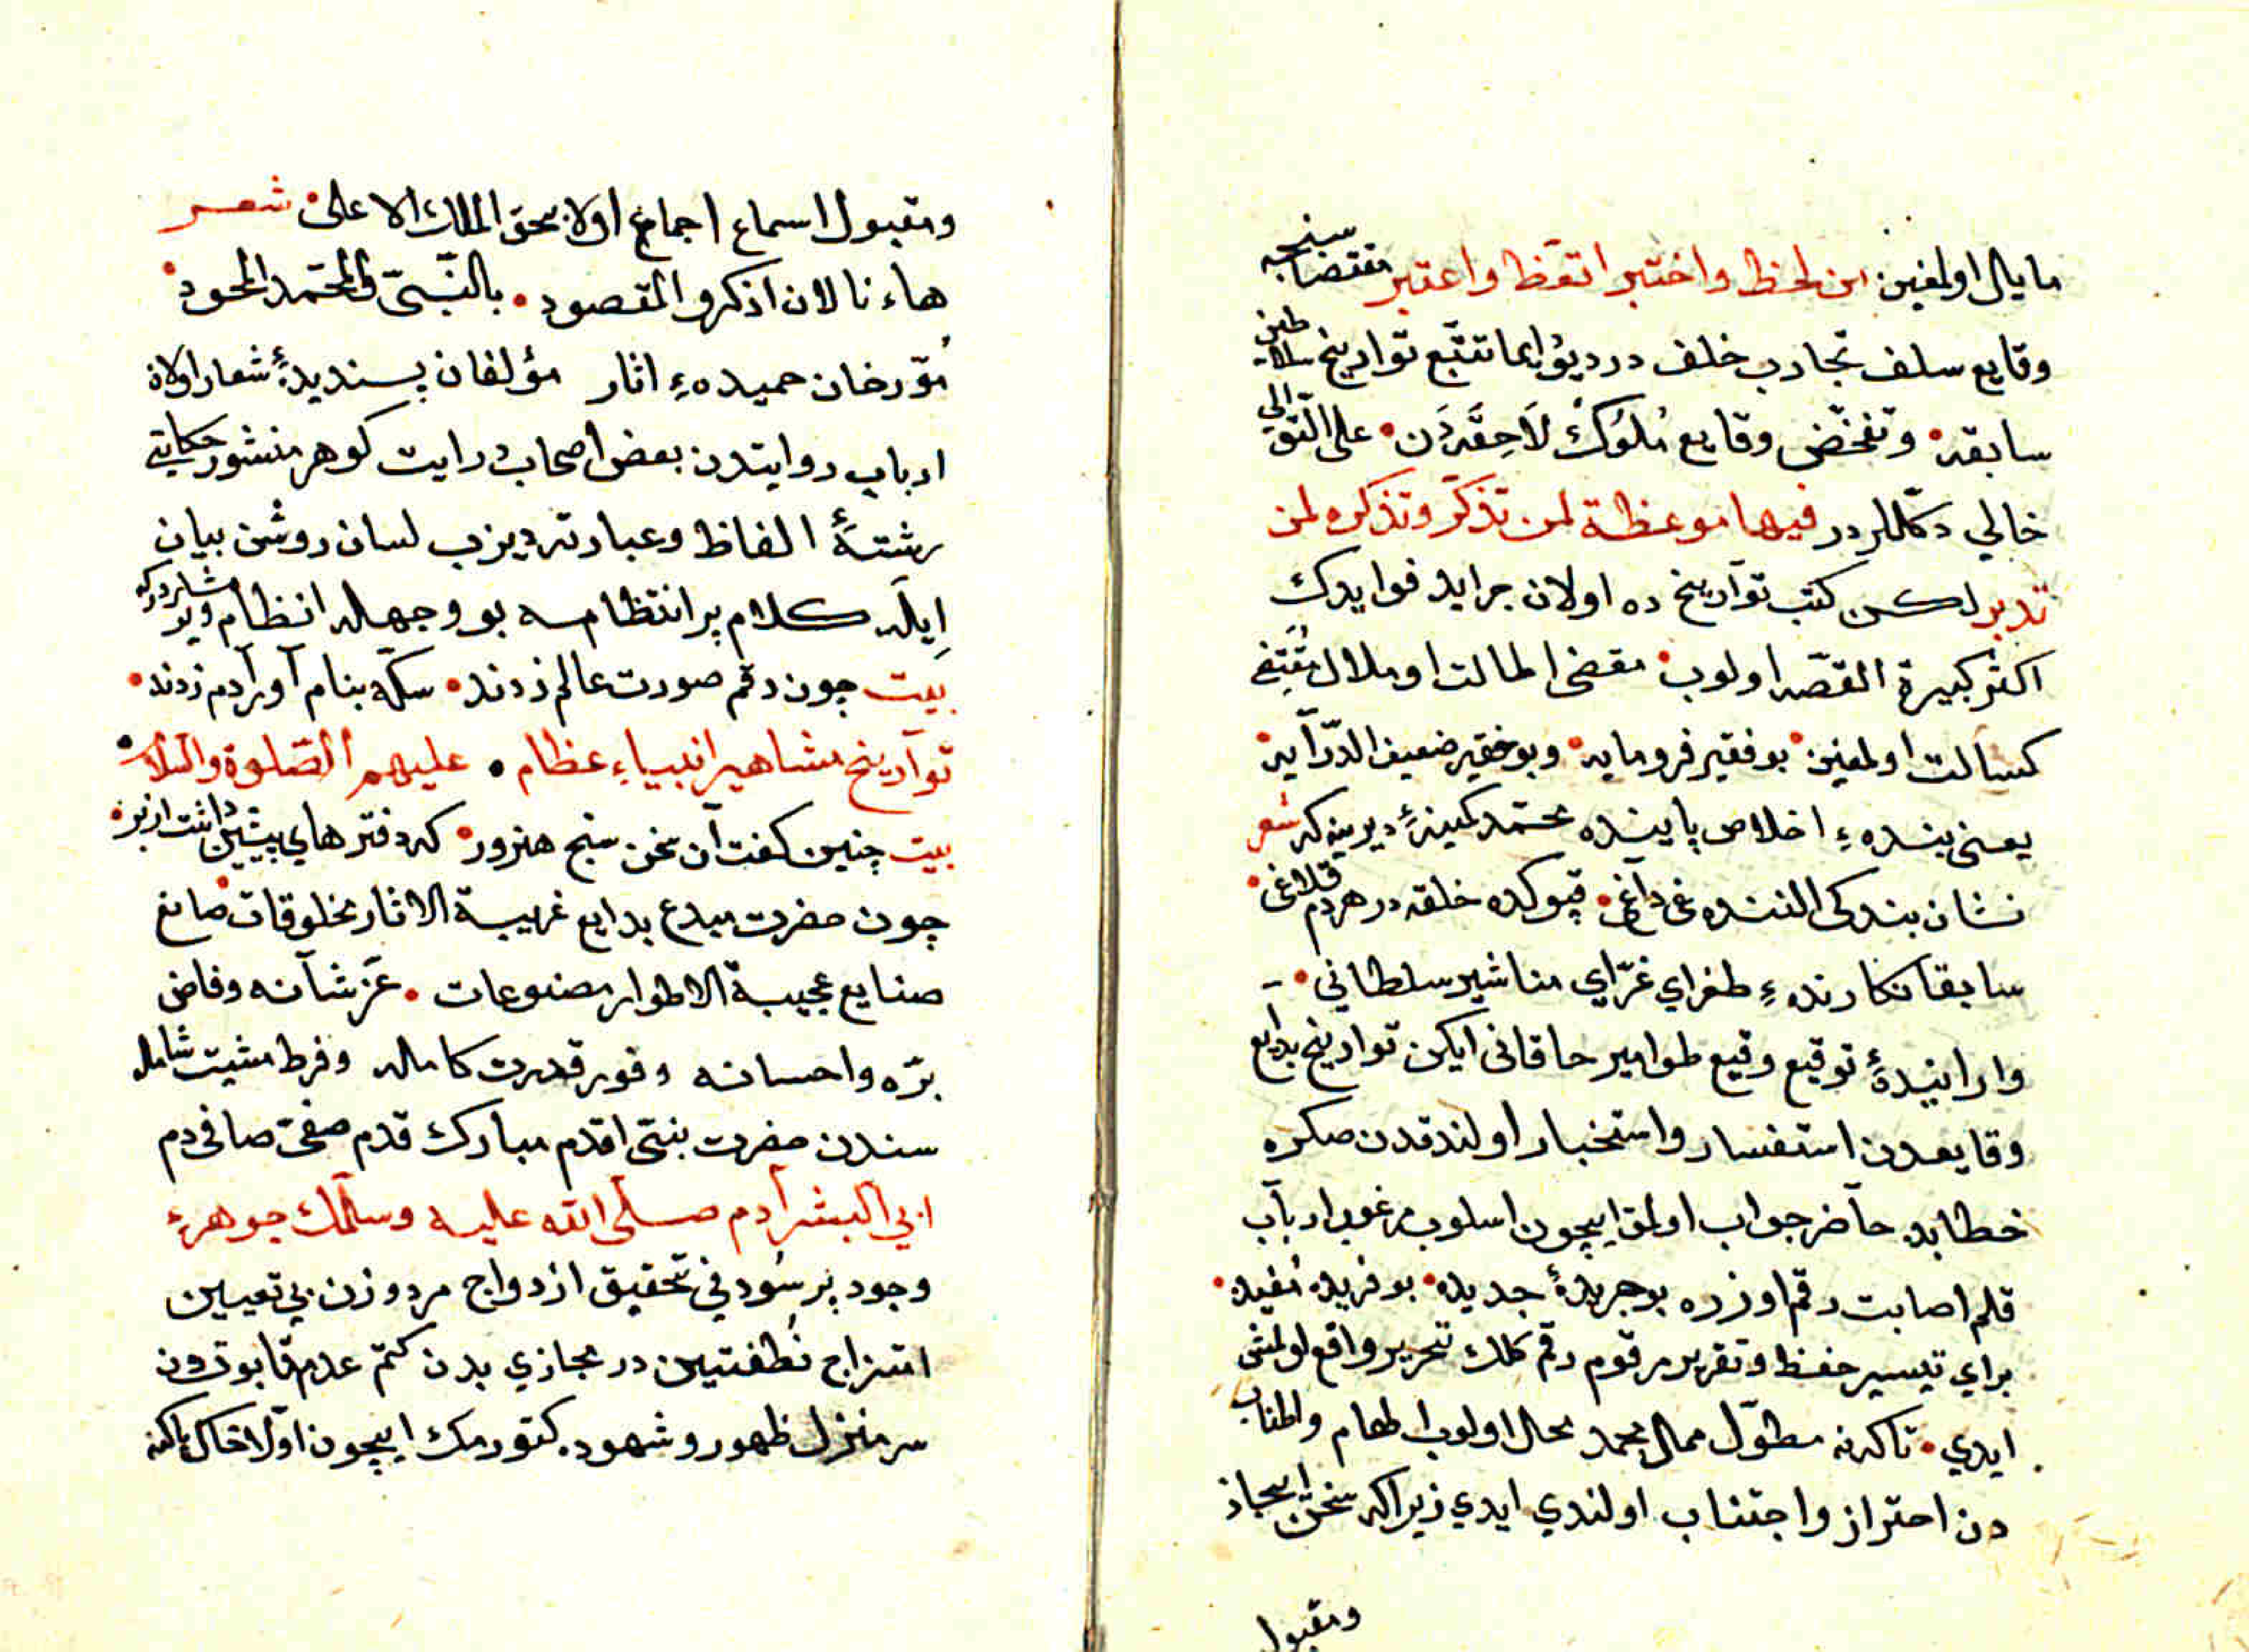 مايال اولمغين من لحظ واختبر اتعظ واعتبر مقتضاسنجه
وقايع سلف تجارب خلف در ديو ايما تتبّع تواريخ سلاطين
سابقه • وتفحّض وقايع مُلوُكْ لاَحِقَه دَن • على التّوالي
خالي دكللردر فيها موعظة لمن تذكّر وتذكره لمن
تدبر لكن كتب توآريخ ده اولان جرايد فوايدك
اكثر كبيرة القصّه اولوب • مقضى اطالت و ملال
كسالت اولمغين • بو فقير فرومايه • وبو حقير ضعيف الدّرآيه •
يعنى بنده ء اخلاص پاينده محمّد كمينهٔ ديرينه كه شعر
نشان بندكى النده غى داغى • قپوكده خلقه در هردم قلاغى •
سابقا نكارنده ء طغراي غرّاي مناشير سلطاني •
وارايندهٔ توقيع وقيع طوامير حاقانى ايكن تواريخ بدايع
وقايعدن استفسار واستخبار اولندقدن صكره
خطابه حآضر جواب اولمق ايچون اسلوب مرغوب اربآب
قلم اصابت رقم اوزره بو جريدهٔ جديده • بو فريده مُفيده •
براي تيسير حفظ و تقرير مرقوم رقم كلك تحرير واقع اولمش
ايدي • تاكه نه مطوّل ممال نه محال اولوب اطهام واطناب
دن احتراز واجتناب اولندي ايدي زيرا كه سخن ايجاز
ومقبول
ومقبول اسماع اجماع اولا بحق الملك الاعلى • شعر
هاء نا لان اذكر و المقصود • بالنّبىّ والمحّمد المحمود •
مُوّرخان حميده ء اثار مؤلفان پسنديدهٔ شعار اولان
ارباب روايتدن بعض اصحاب درايت كوهر منشور حكايتي
رشتهٔ الفاظ وعبارته ديزب لسان روشن بيان
اِيلَه كلام پر انتظامه بو وجهله انظام ويرمشلردركه
بيت چون رقم صورت عالم زدند • سكّه بنام آور آدم زدند •
توآريخ مشاهير انبياء عظام • عليهم الصّلوة والسّلام •
بيت چنين كفت آن سخن سنج هنرور • كه دفترهاي پيشين داشت ازبر •
چون حضرت مبدع بدايع غريبة الاثار مخلوقات صانع
صنايع عجيبة الاطوار مصنوعات • عَزّ شآنه وفاض
برّه واحسانه وفور قدرت كامله وفرط مشيت شامله
سندن حضرت نبىّ اقدم مبارك قدم صفىّ صافى دم
ابي البشر آدم صلّى الله عليه وسلّمك جوهرء
وجود پر سُودني تحقيق ازدواج مرد و زن بي تعيين
امتزاج نُطفتين در مجازي بدن كتم عدم تابوتدن
سرمنزل ظهور و شهوده كتورمك ايچون اوّلا خاك پاكنه